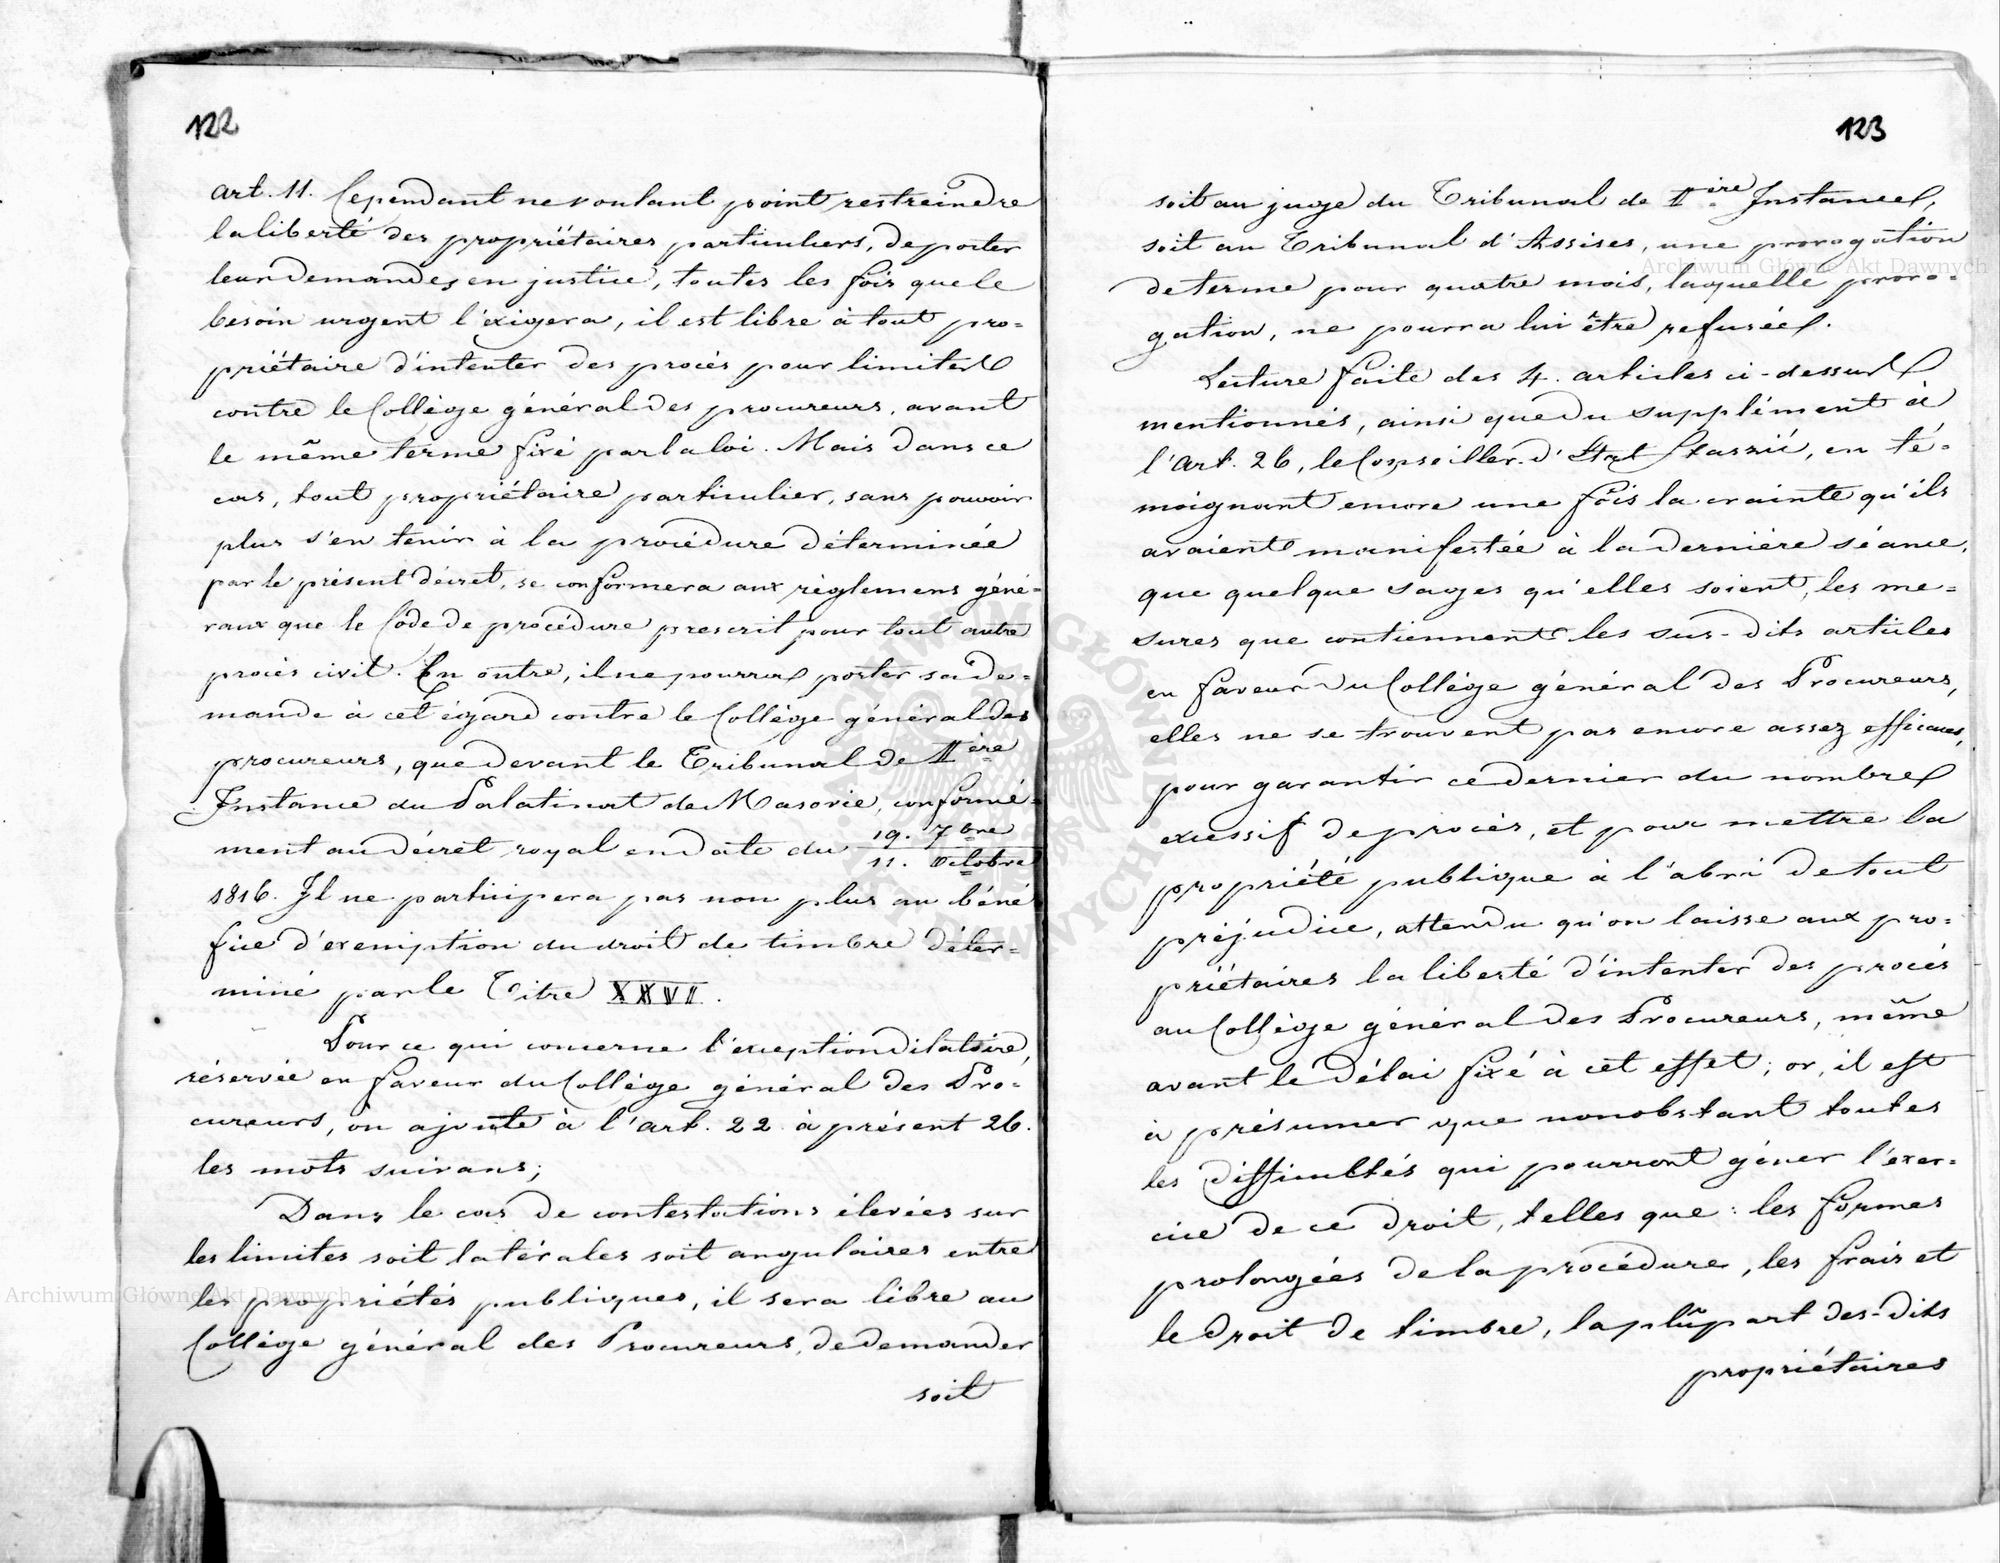 122
art. 11. Cependant ne voulant point restreindre
la liberté des propriétaires particuliers, de porter
leur demandes en justice, toutes les fois que le
besoin urgent l'éxigera, il est libre à tout pro=
priétaire d'intenter des procès pour limites
contre le Collège général des procureurs, avant
le même terme fixé par la loi. Mais dans ce
cas, tout propriétaire particulier, sans pouvoir
plus s'en tenir à la procédure déterminée
par le présent décret, se conformera aux règlemens géné=
raux que le Code de procédure prescrit pour tout autre
procès civil. En outre, il ne pourra porter sa de=
mande à cet égard contre le Collège général des
procureurs, que devant le Tribunal de Iière
Instance du Palatinat de Masovie, conformé=
ment au décret royal en date du 19. 7bre / 11. Octobre
1816. Il ne participera pas non plus au béné
fice d'exemption du droit de timbre déter=
miné par le Titre XXVI.
Pour ce qui concerne l'exception dilatoire,
réservée en faveur du Collège général des Pro=
cureurs, on ajoute à l'art. 22 à présent 26.
les mots suivans;
Dans le cas de contestations élevées sur
les limites soit latérales soit angulaires entre
les propriétés publiques, il sera libre au
Collège général des Procureurs, de demander
soit
123
soit au juge du Tribunal de Iière Instance,
soit au Tribunal d'Assises, une prorogation
de terme pour quatre mois, laquelle proro=
gation, ne pourra lui être refusée.
Lecture faite des 4. articles ci-dessus
mentionnés, ainsi que du supplément à
l'Art. 26, le Conseiller d'Etat Staszic, en té=
moignant encore une fois la crainte qu'ils
avaient manifestée à la dernière séance,
que quelque sages qu'elles soient, les me=
sures que contiennent les sus-dits articles
en faveur du Collège général des Procureurs,
elles ne se trouvent pas encore assez efficaces,
pour garantir ce dernier du nombre
excessif de procès, et pour mettre la
propriété publique à l'abri de tout
préjudice, attendu qu'on laisse aux pro=
priétaires la liberté d'intenter des procès
au Collège général des Procureurs, même
avant le délai fixé à cet effet; or, il est
à présumer que nonobstant toutes
les difficultés qui pourront gêner l'exer=
cice de ce droit, telles que: les formes
prolongées de la procédure, les frais et
le droit de timbre, la plûpart des-dits
propriétaires
Archiwum Główne Akt Dawnych
Archiwum Główne Akt Dawnych